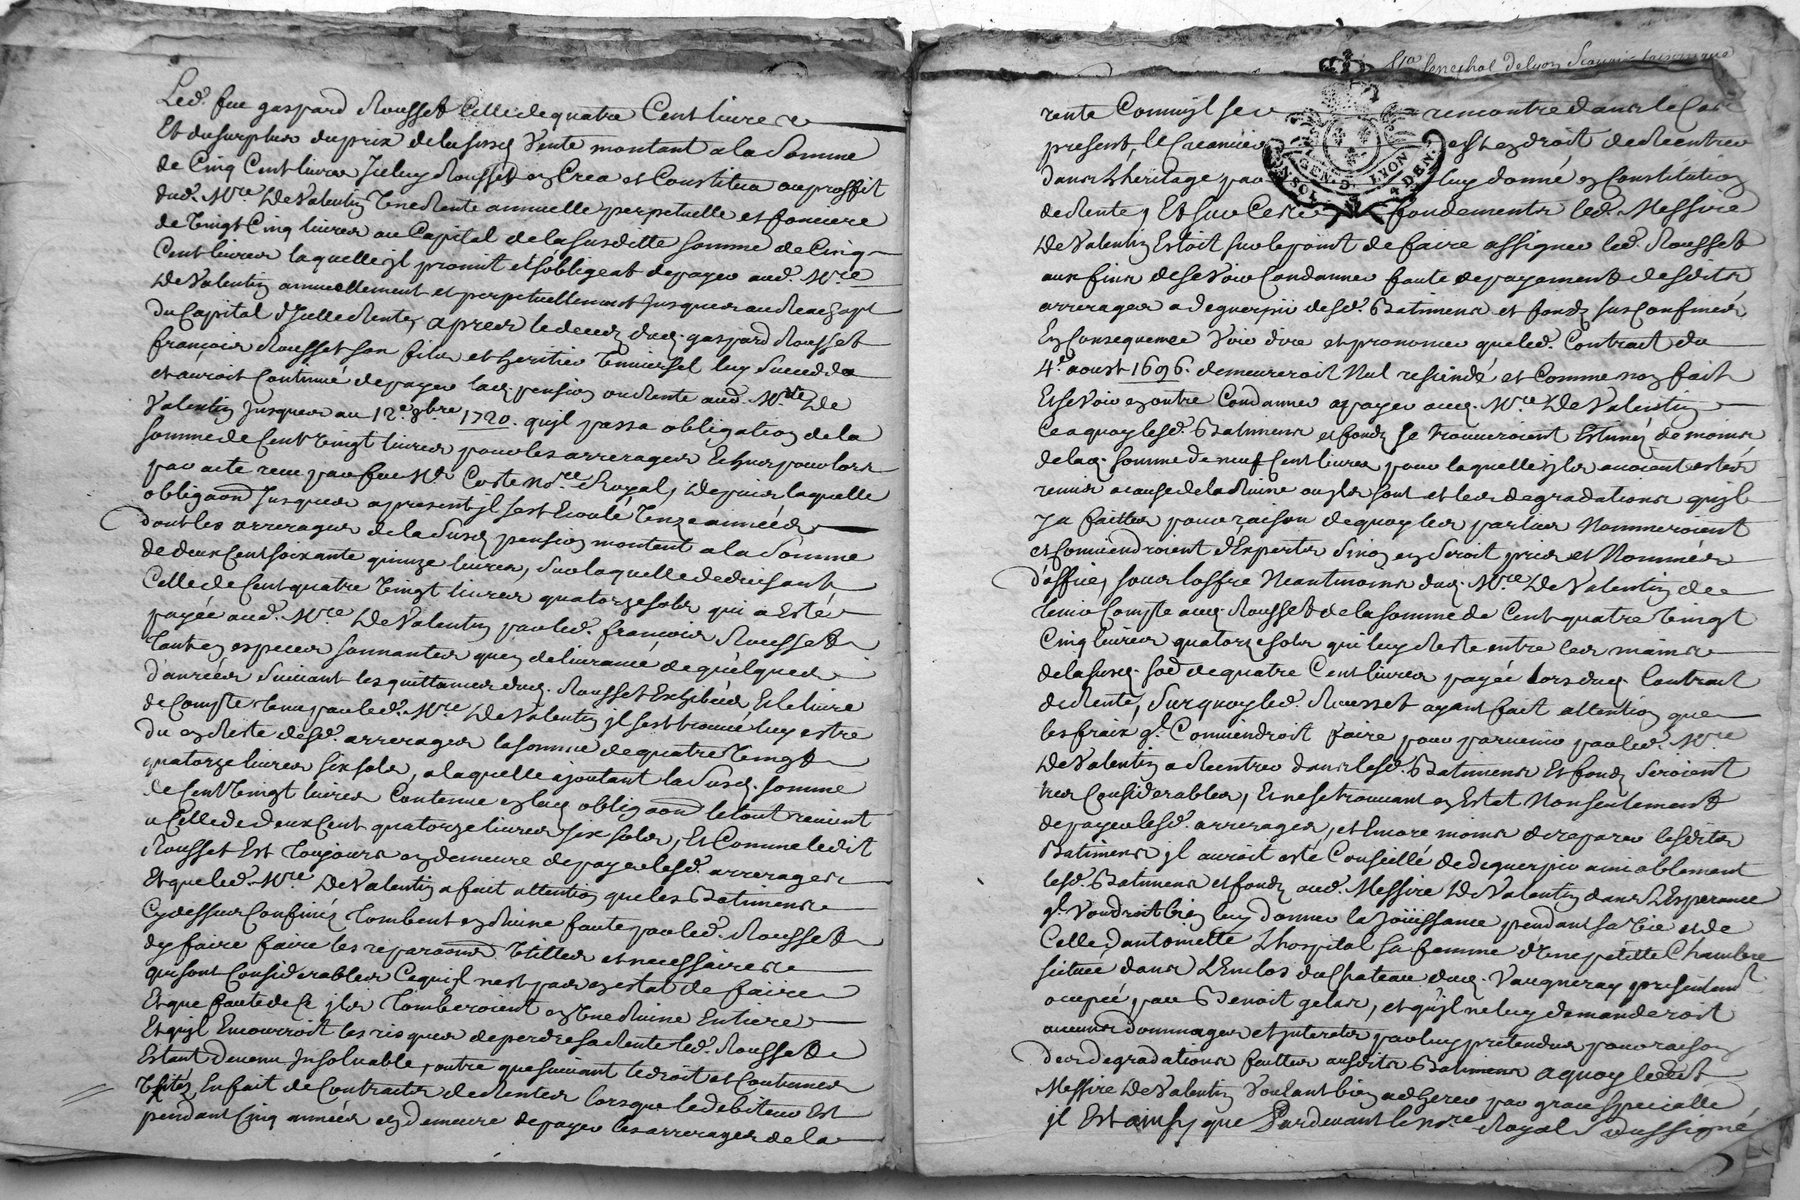 Led. feu gaspard Rousset Celle de quatre Cent livres
Et du surplus du prix de la susd. Vente montant a la Somme
de Cinq Cent livres Iceluy Rousset en Crea et Constitua au proffit
dud. Mre De Valentin Une Rente annuelle perpetuelle et fonciere
de Vingt Cinq livres au Capital de la susditte somme de Cinq
Cent livres laquelle jl promit et s'obligeat de payer aud. Mre
De Valentin annuellement et perpetuellement jusques au Reachapt
du Capital d'Icelle Rente, apres le deces dud. gaspard Rousset
françois Rousset son fils et heritier Universel luy succedda
et auroit Continué de payer lad. pension ou Rente aud. Mre De
Valentin jusques au 12e 8bre 1720. qu'jl passa obligation de la
somme de Cent Vingt livres pour les arrerages Echus pour lors
par acte receu par feu Me Coste Nore Royal, depuis laquelle
obligaon jusques a present jl s'est Ecoulé Unze années
dont les arrerages de la susd. pension montent a la Somme
de deux Cent soixante quinze livres, sur laquelle deduisant
Celle de Cent quatre Vingt livres quatorze sols qui a Esté
payée aud. Mre De Valentin par led. françois Rousset
Tant en especes sonnantes qu'en delivrance de quelques
danrées suivant les quittances dud. Rousset Exhibées Et le livre
de Compte tenu par led. Mre De Valentin jl s'est trouvé luy estre
du en Reste desd. arrerages la somme de quatre Vingt
quatorze livres six sols, a laquelle ajoutant la susd. somme
de Cent Vingt livres Contenue en lad. obligaon le tout revient
a Celle de deux Cent quatorze livres six sols, Et Comme ledit
Rousset Est Toujours en demeure de payer lesd. arrerages
Et que led. Mre De Valentin a fait attention que les Batimens
Cy dessus Confinés Tombent en Ruine faute par led. Rousset
d'y faire faire les reparaons Utilles et necessaires
qui sont Considerables Ce qu'jl n'est pas en estat de faire
Et que faute de Ce jls Tomberoient en Une Ruine Entiere
Et qu'jl Encourroit les risques de perdre sa Rente led. Rousset
Estant devenu Insolvable, outre que suivant le droit et Coutumes
Usitées En fait de Contracts de Rentes lorsque le debiteur Est
pendant Cinq années en demeure de payer les arrerages de la
Senechal de Lyon
rente Comm'jl se rencontre dans le Cas
present, le Creancier est en droit de Rentrer
dans L'héritage par luy donné en Constitution
de Rente, Et sur Ces fondements led. Messire
De Valentin Estoit sur le point de faire assigner led. Rousset
aux fins de se Voir Condamner faute de payement desdits
arrerages a deguerpir desd. Batimens et fonds sus Confinés
En Consequence Voir dire et prononcer que led. Contract du
4e. aoust 1696. demeureroit Nul rescindé et Comme non fait
Et se Voir en outre Condamner a payer aud. Mre De Valentin
Ce a quoy lesd. Batimens et fonds se trouveroient Estimés de moins
de lad. somme de neuf Cent livres pour laquelle jls avoient estés
remis a cause de la Ruine ou jls sont et les degradations qu'jl
y a faittes pour raison de quoy les parties Nommeroient
et Conviendroient d'Experts Sinon en Seroit pris et Nommés
d'office, sous l'offre Neantmoins dud. Mre De Valentin de
tenir Compte aud. Rousset de la somme de Cent quatre Vingt
Cinq livres quatorze sols qui luy Reste entre les mains
de la susd. soe de quatre Cent livres payée lors dud. Contract
de Rente, Sur quoy led. Rousset ayant fait attention que
les fraix ql. Conviendroit faire pour parvenir par led. Mre
De Valentin a Rentrer dans lesd. Batimens Et fonds Seroient
tres Considerables, Et ne se trouvant en Estat Non seulement
de payer lesd. arrerages, et Encore moins de reparer lesdits
Batimens jl auroit esté Conseillé de deguerpir amiablement
lesd. Batimens et fonds aud. Messire De Valentin dans L'Esperance
ql. Voudroit bien luy donner la Joüissance pendant sa Vie et de
Celle d'antoinette L'hospital sa femme d'Une petitte Chambre
scituée dans L'Enclos du Chateau dud. Vaugneray presentemt
ocupée par Benoit gelas, et qu'jl ne luy demanderoit
aucuns dommages et jnterets par luy pretendus pour raison
des degradations faittes ausdits Batimens a quoy ledit
Messire De Valentin Voulant bien adherer par grace specialle
jl Est ainsy que Pardevant le Nore Royal soussigné
GEN. D. LYON
4 DEN.